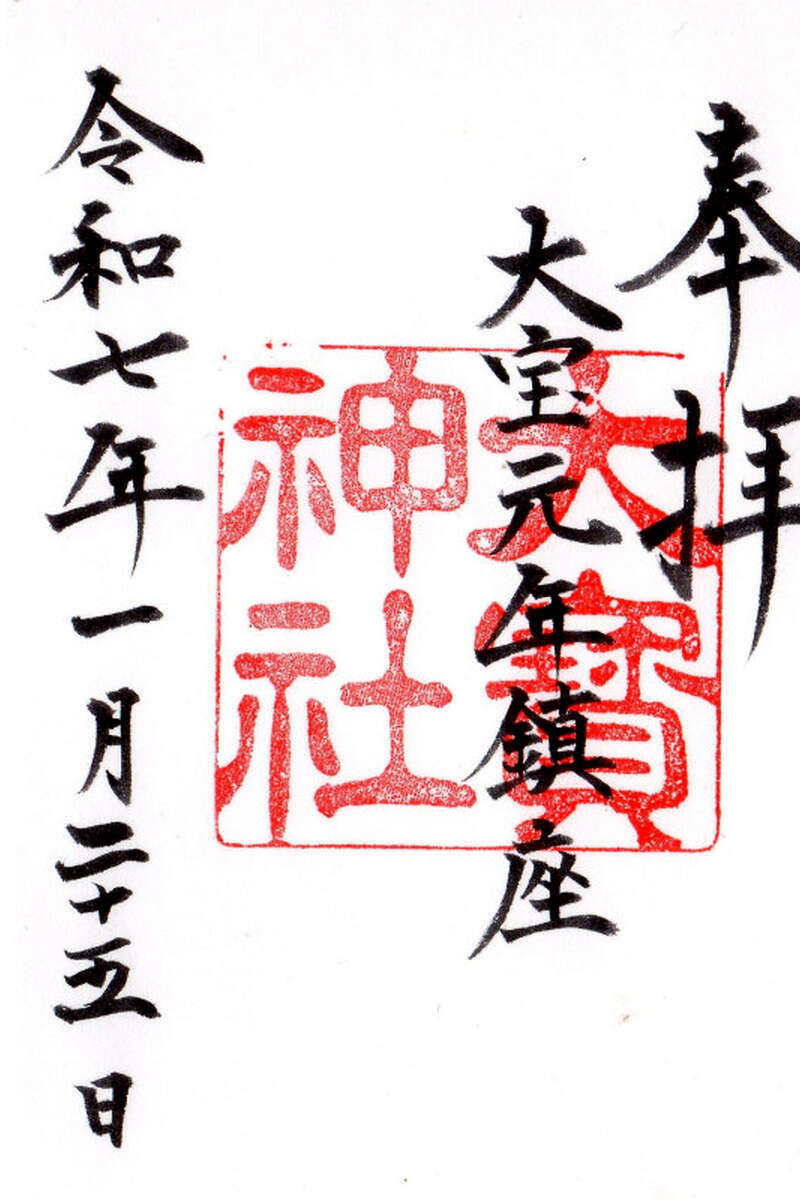 奉拝
大宝元年鎮座
大寳
神社
令和七年一月二十五日